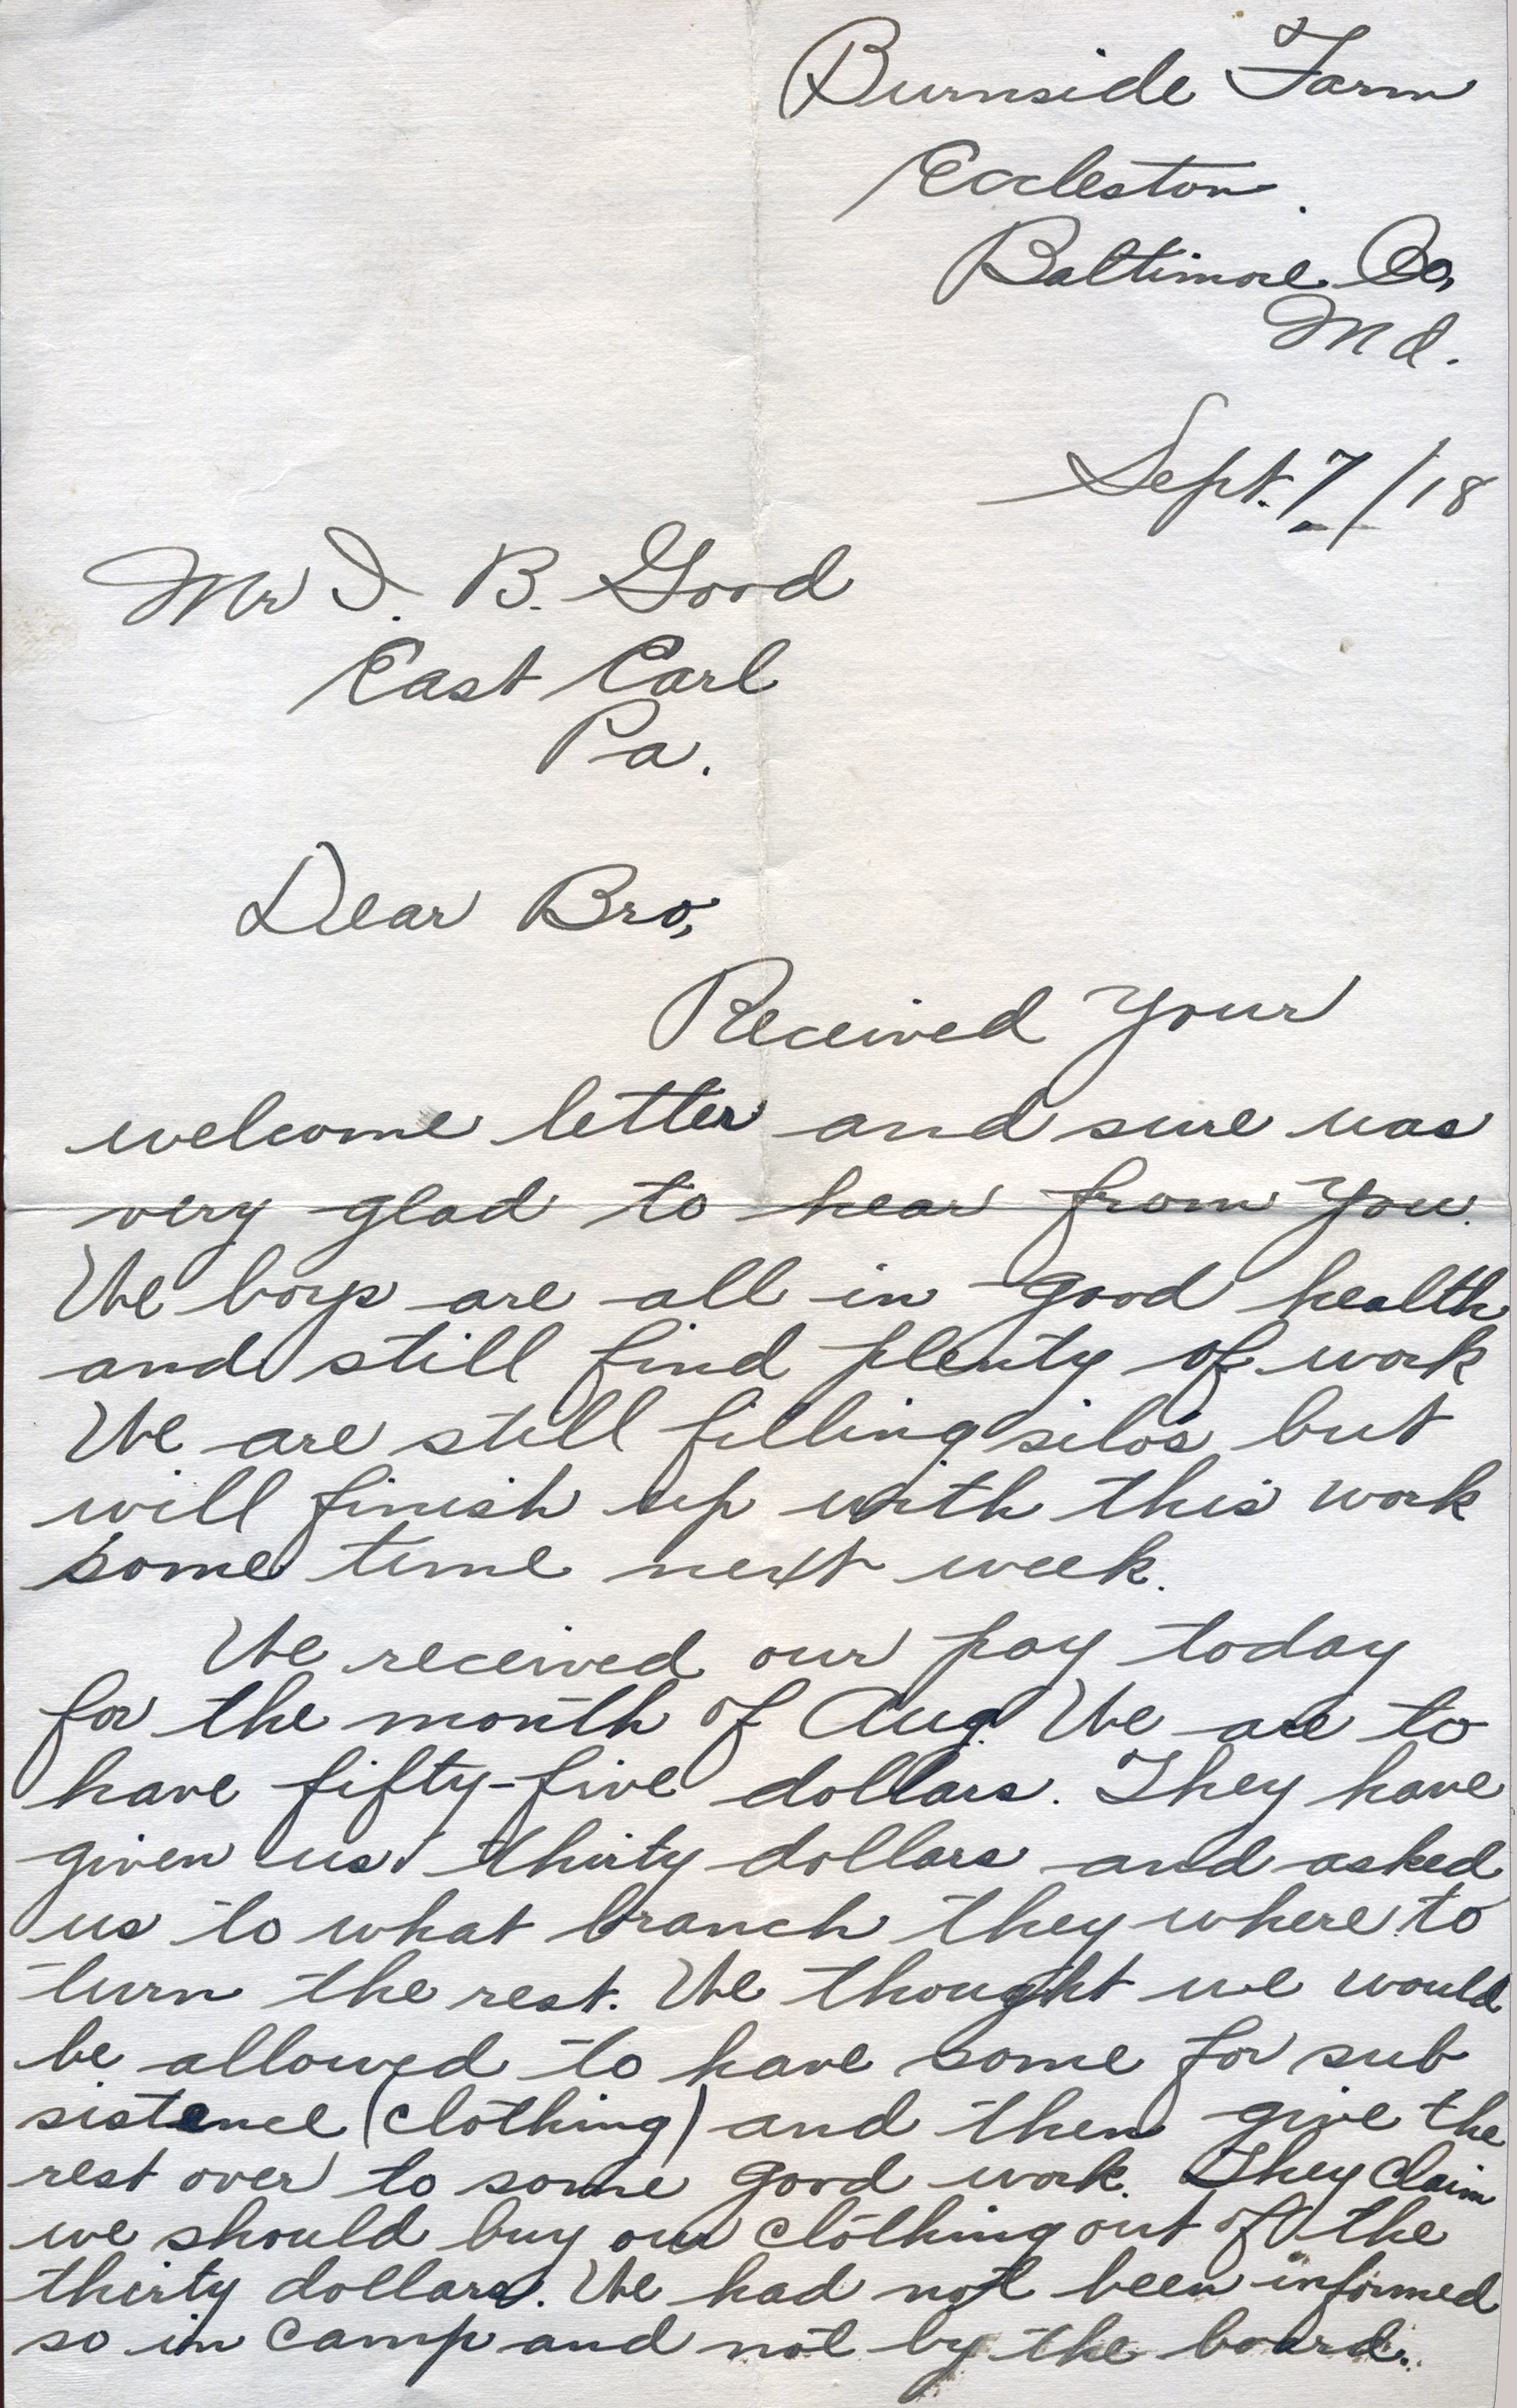 Burnside Farm
Eccleston
Baltimore Co,
Md.
Sept. 7/18
Mr I. B. Good
East Earl
Pa.
Dear Bro,
Received your
welcome letter and sure was
very glad to hear from you.
We boys are all in good health
and still find plenty of work
We are still filling silos but
will finish up with this work
some time next week.
We received our pay today
for the month of Aug. We are to
have fifty-five dollars. They have
given us thirty dollars and asked
us to what branch they where to
turn the rest. We thought we would
be allowed to have some for sub
sistence (clothing) and then give the
rest over to some good work. They claim
we should buy our clothing out of the
thirty dollars. We had not been informed
so in camp and not by the board.